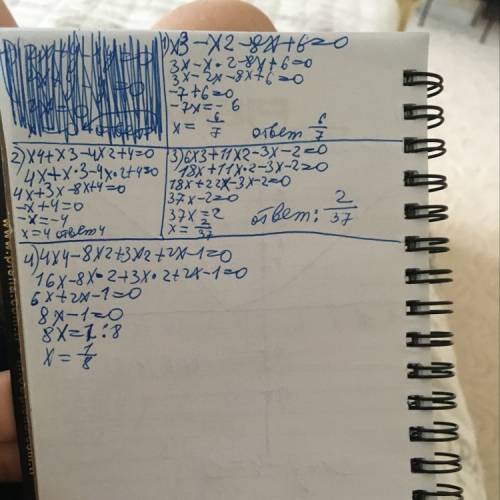 1) x3-x2-8x+6=0
3x-x·2-8x+6=0
3x-2x-8x+6=0
-7+6=0
-7x=-6
x= 6/7 ответ 6/7
2) x4+x3-4x2+4=0
4x+x·3-4x·2+4=0
4x+3x-8x+4=0
-x+4=0
-x=-4
x=4 ответ 4
3) 6x3+11x2-3x-2=0
18x+11x·2-3x-2=0
18x+22x-3x-2=0
37x-2=0
37x=2
x= 2/37 ответ: 2/37
4) 4x4-8x2+3x2+2x-1=0
16x-8x·2+3x·2+2x-1=0
6x+2x-1=0
8x-1=0
8x=1:8
x= 1/8